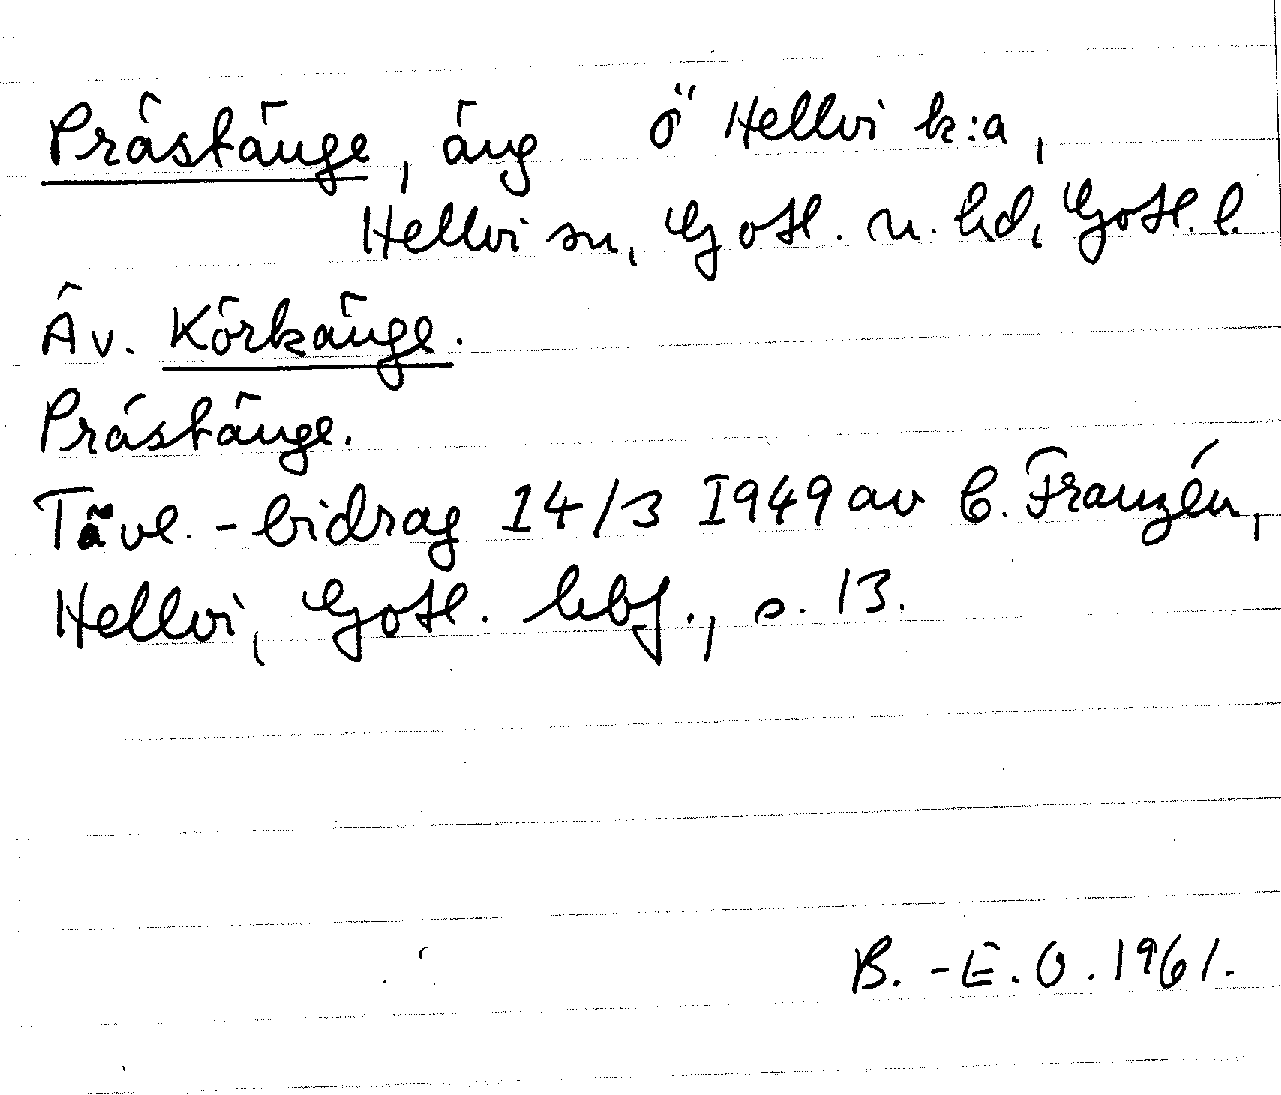 Prästänge, äng ö Hellvi k:a,
Hellvi sn, Gotl. n. hd, Gotl. l.
Äv. Körkänge.
Prästänge.
Tävl.-bidrag 14/3 1949 av C. Franzén,
Hellvi, Gotl. hbf., s. 13.
B.-E.O. 1961.